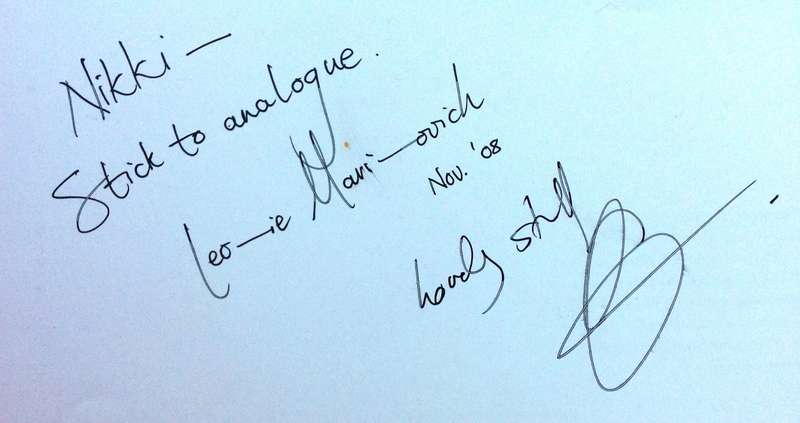 Nikki —
Stick to analogue.
Leo—ie Mari—ovich
Nov. '08